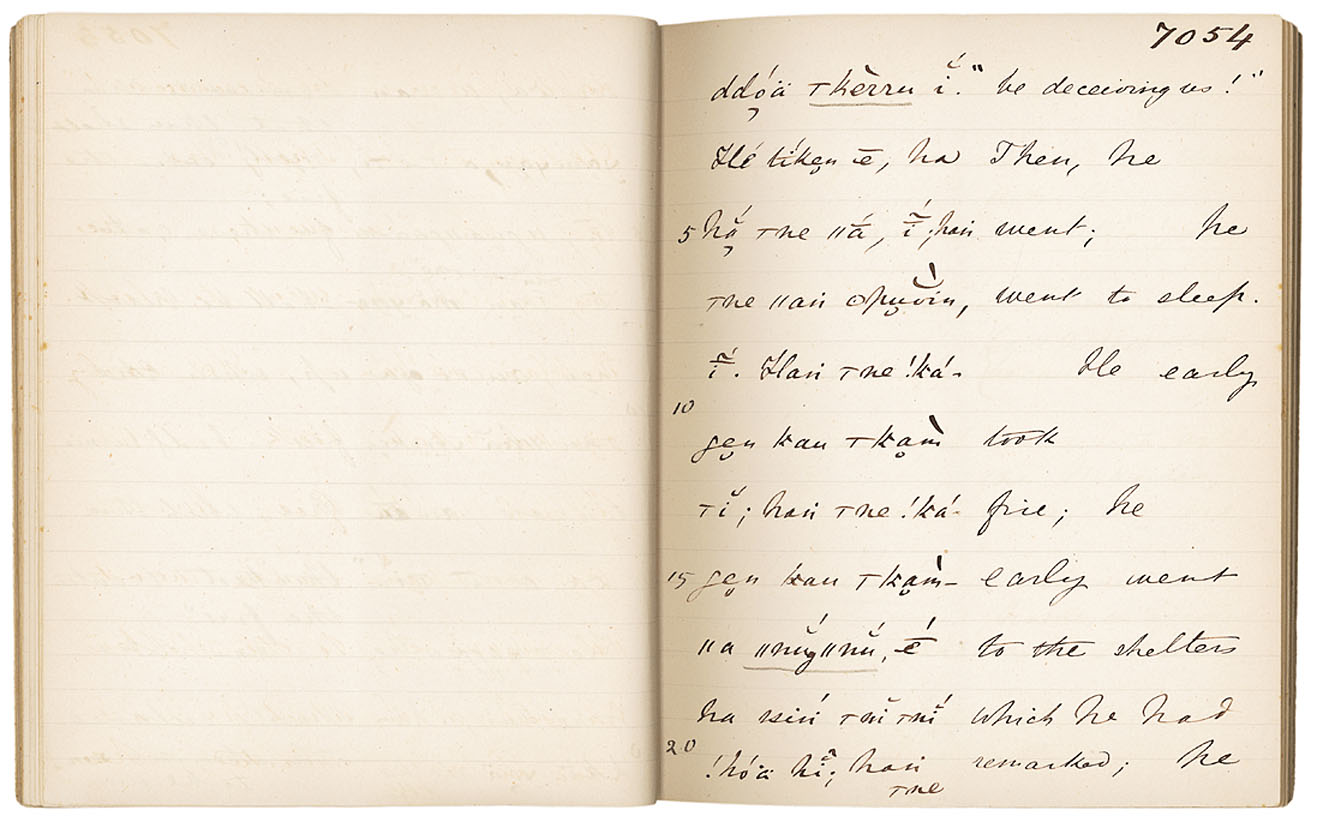 7054
ddó̤ä ⊤kĕrru ĭ́." be deceiving us!"
Hé tíke̤n ē, ha Then, he
5 hắ ⊤ne ǁá, ī́; haṅ went; he
⊤ne ǁaṅ opuŏ́in, went to sleep.
ī́. Haṅ ⊤ne !ká- He early
10
ge̤n kau ⊤ka̤m̀ took
⊤ĭ; haṅ ⊤ne !ká- fire; he
15 ge̤n kau ⊤ka̤m̀- early went
ǁa ǁnŭ́gǁnŭ́, ḗ to the shelters
ha ssiṅ ⊤nĭ ⊤nĭ́ which he had
20 !hó̤ä hĩ; haṅ remarked; he
⊤ne